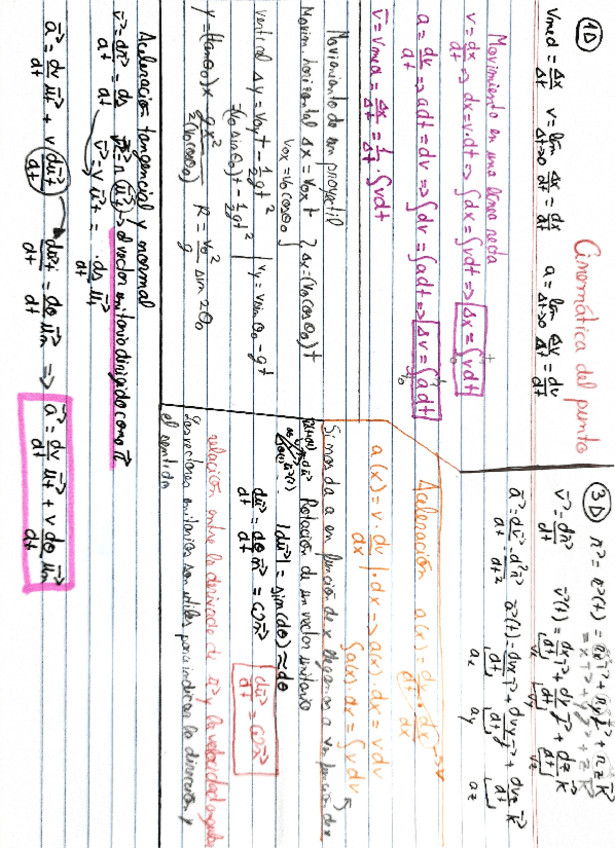 Cinemática del punto
1D
Vmed = Δx/Δt   v = lim Δt→0 Δx/Δt = dx/dt   a = lim Δt→0 Δv/Δt = dv/dt
Movimiento en una línea recta
v = dx/dt ⇒ dx = v·dt ⇒ ∫dx = ∫vdt ⇒ Δx = ∫vdt
a = dv/dt ⇒ adt = dv ⇒ ∫dv = ∫adt ⇒ Δv = ∫adt
v̄ = Vmed = Δx/Δt = 1/Δt ∫vdt
Movimiento de un proyectil
Movim horizontal Δx = Vox t
Vox = Vo cosθo } Δx = (Vo cosθo)t
vertical Δy = Voy t - 1/2 gt²
= (Vo sinθo)t - 1/2 gt² | Vy = Vo sin θo - gt
y = (tanθo)x - gx²/2(Vo cosθo)   R = Vo²/g sin 2θo
Aceleración tangencial y normal
el vector unitario dirigido como
v⃗ = v u⃗t = ds/dt u⃗t
a⃗ = dv/dt u⃗t + v du⃗t/dt   du⃗t/dt = dθ/dt u⃗n ⇒ a⃗ = dv/dt u⃗t + v dθ/dt u⃗n
3D
r⃗ = r⃗(t) = rx i⃗ + ry j⃗ + rz k⃗
= x i⃗ + y j⃗ + z k⃗
v⃗ = dr⃗/dt   v⃗(t) = dx/dt i⃗ + dy/dt j⃗ + dz/dt k⃗
vx vy vz
a⃗ = dv⃗/dt = d²r⃗/dt²   a⃗(t) = dvx/dt i⃗ + dvy/dt j⃗ + dvz/dt k⃗
ax ay az
Aceleración a(x) = dv/dt · dx/dx → v
a(x) = v · dv/dx | · dx ⇒ a(x)·dx = vdv
∫a(x)·dx = ∫vdv
Si nos da a en función de x llegamos a v en función de x
Rotación de un vector unitario
|du⃗| = sin(dθ) ≈ dθ
du⃗/dt = dθ/dt n⃗ = ω n⃗   du⃗/dt = ω n⃗
relación entre la derivada de u⃗ y la velocidad angular
Los vectores unitarios son útiles para indicar la dirección y
el sentido